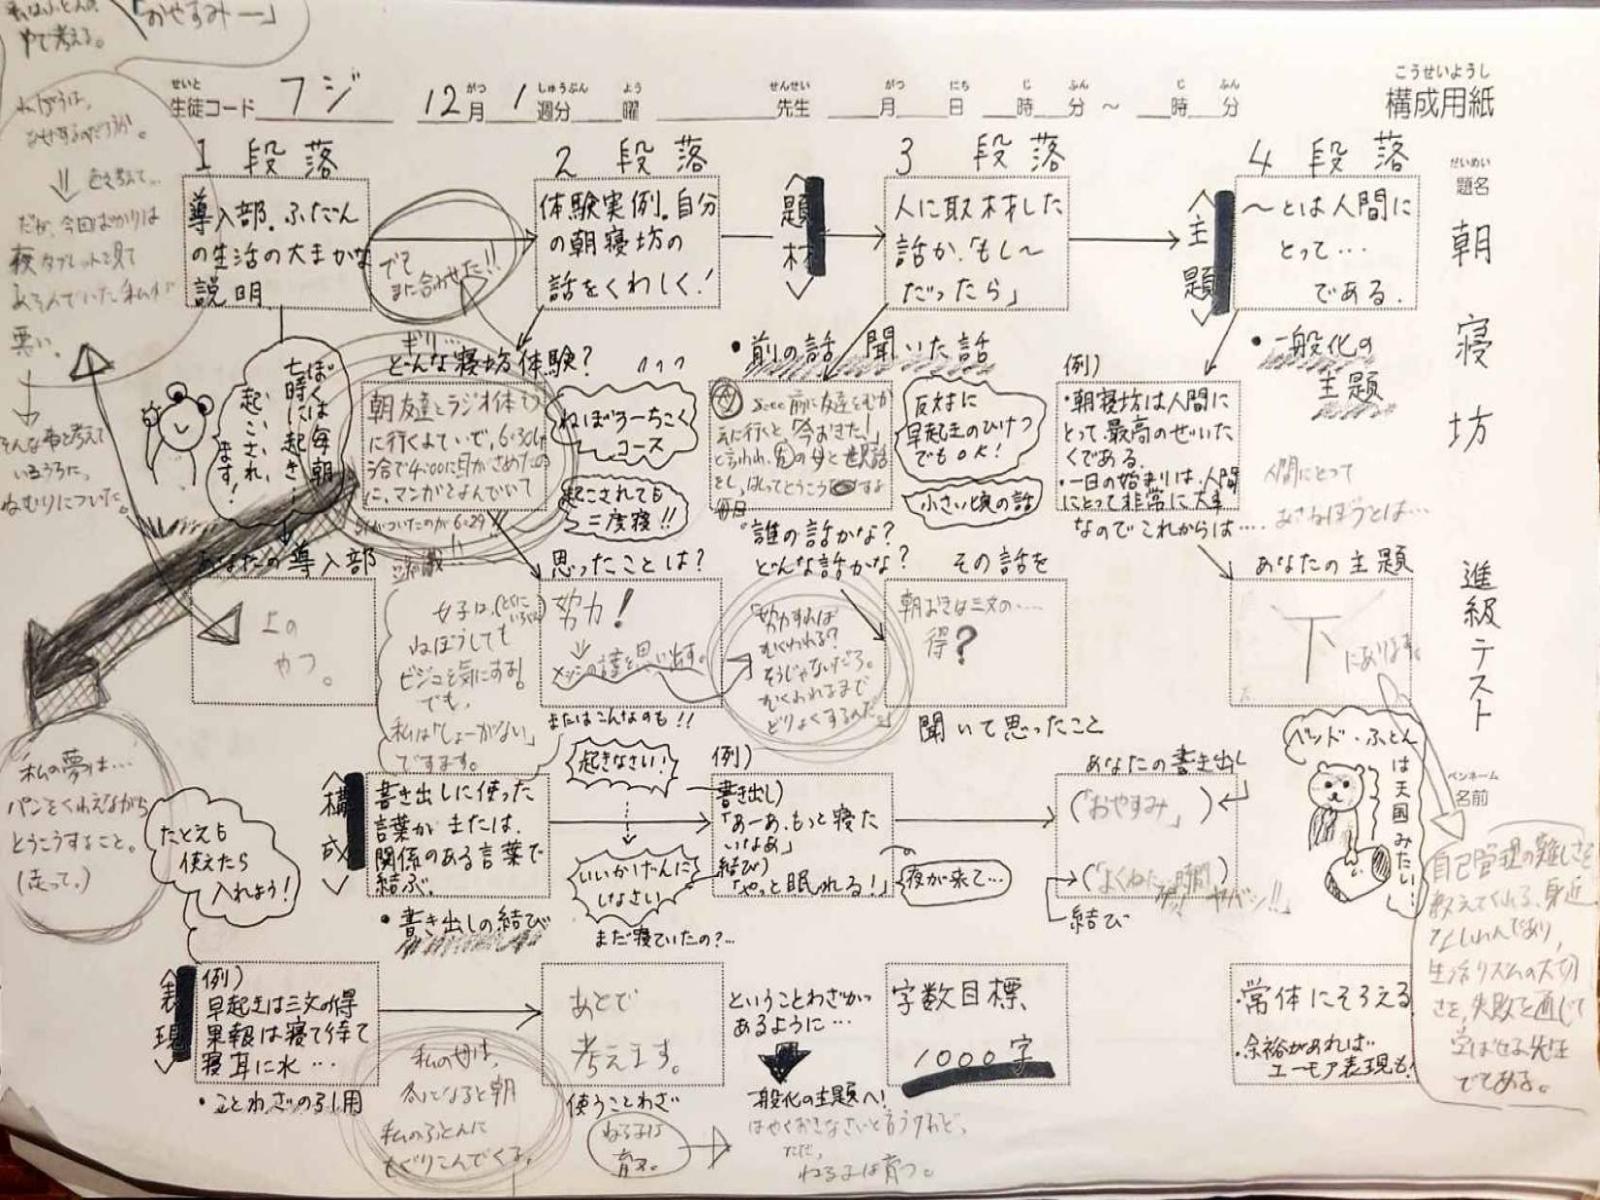 「おやすみー」
やで考える。
こうせいようし
構成用紙
せいと
生徒コード フジ
12月 1週分 曜
先生 月 日 時 分 ～ 時 分
だいめい
題名
朝寝坊
進級テスト
ペンネーム
名前
ねぼうは、
なぜするのだろうか。
だが、今回ばかりは
夜タブレットを見て
あそんでいた私が
悪い。
そんな事を考えて
いるうちに、
ねむりについた。
1段落
導入部。ふだん
の生活の大まかな
説明
でて
まに合わせた!!
2段落
体験実例。自分
の朝寝坊の
話をくわしく!
＜題材＞
3段落
人に取材した
話か、「もし～
だったら」
＜主題＞
4段落
～とは人間に
とって…
である.
ぼくは毎朝
七時に起き…
起こされ
ます!
ギリ…
どんな寝坊体験?
朝友達とラジオ体そう
に行くよていで、6:30
合で4:00に目がさめたの
に、マンガをよんでいて
気がついたのが6:29
ねぼうーちこく
コース
起こされても
二度寝!!
・前の話 聞いた話
前に友達をむか
えに行くと、「今おきた!」
と言われ、
反対に
早起きのひけつ
でもOK!
小さい頃の話
例)
・朝寝坊は人間に
とって、最高のぜいた
くである.
・一日の始まりは、人間
にとって非常に大事
なのでこれからは…
・一般化の
主題
人間にとって
あさねぼうとは…
あなたの導入部
上の
やつ。
女子は、
ねぼうしても
ビジュを気にする!
でも、
私は「しょーがない」
ですます。
思ったことは?
努力!
メッシの言葉を思い出す。
またはこんなのも!!
誰の話かな?
どんな話かな?
「努力すれば
むくわれる?
そうじゃないだろ。
むくわれるまで
どりょくするんだ。」
その話を
朝おきは三文の…
得?
聞いて思ったこと
あなたの主題
下
にあります。
私の夢は…
パンをくわえながら
とうこうすること。
(走って。)
たとえも
使えたら
入れよう!
＜構成＞
書き出しに使った
言葉か または、
関係のある言葉で
結ぶ.
・書き出しの結び
起きなさい!
いいかげんに
しなさい
まだ寝ていたの?…
例)
書き出し)
「あーあ、もっと寝た
いなあ」
結び)
「やっと眠れる!」
夜が来て…
あなたの書き出し
(「おやすみ」)
結び
ヤバッ!!
ベッド・ふとん
は天国みたい…
自己管理の難しさを
教えてくれる、身近
なしれんであり、
生活リズムの大切
さを、失敗を通じて
学ばせる先生
でてある。
＜表現＞
例)
早起きは三文の得
果報は寝て待て
寝耳に水…
・ことわざの引用
私の母は、
冬になると朝
私のふとんに
もぐりこんでくる。
あとで
考えます。
使うことわざ
ねる子は
育つ。
ということわざが
あるように…
一般化の主題へ!
はやくおきなさいと言うけれど、
ただ、
ねる子は育つ。
字数目標、
1000字
・常体にそろえる
・余裕があれば…
ユーモア表現も!